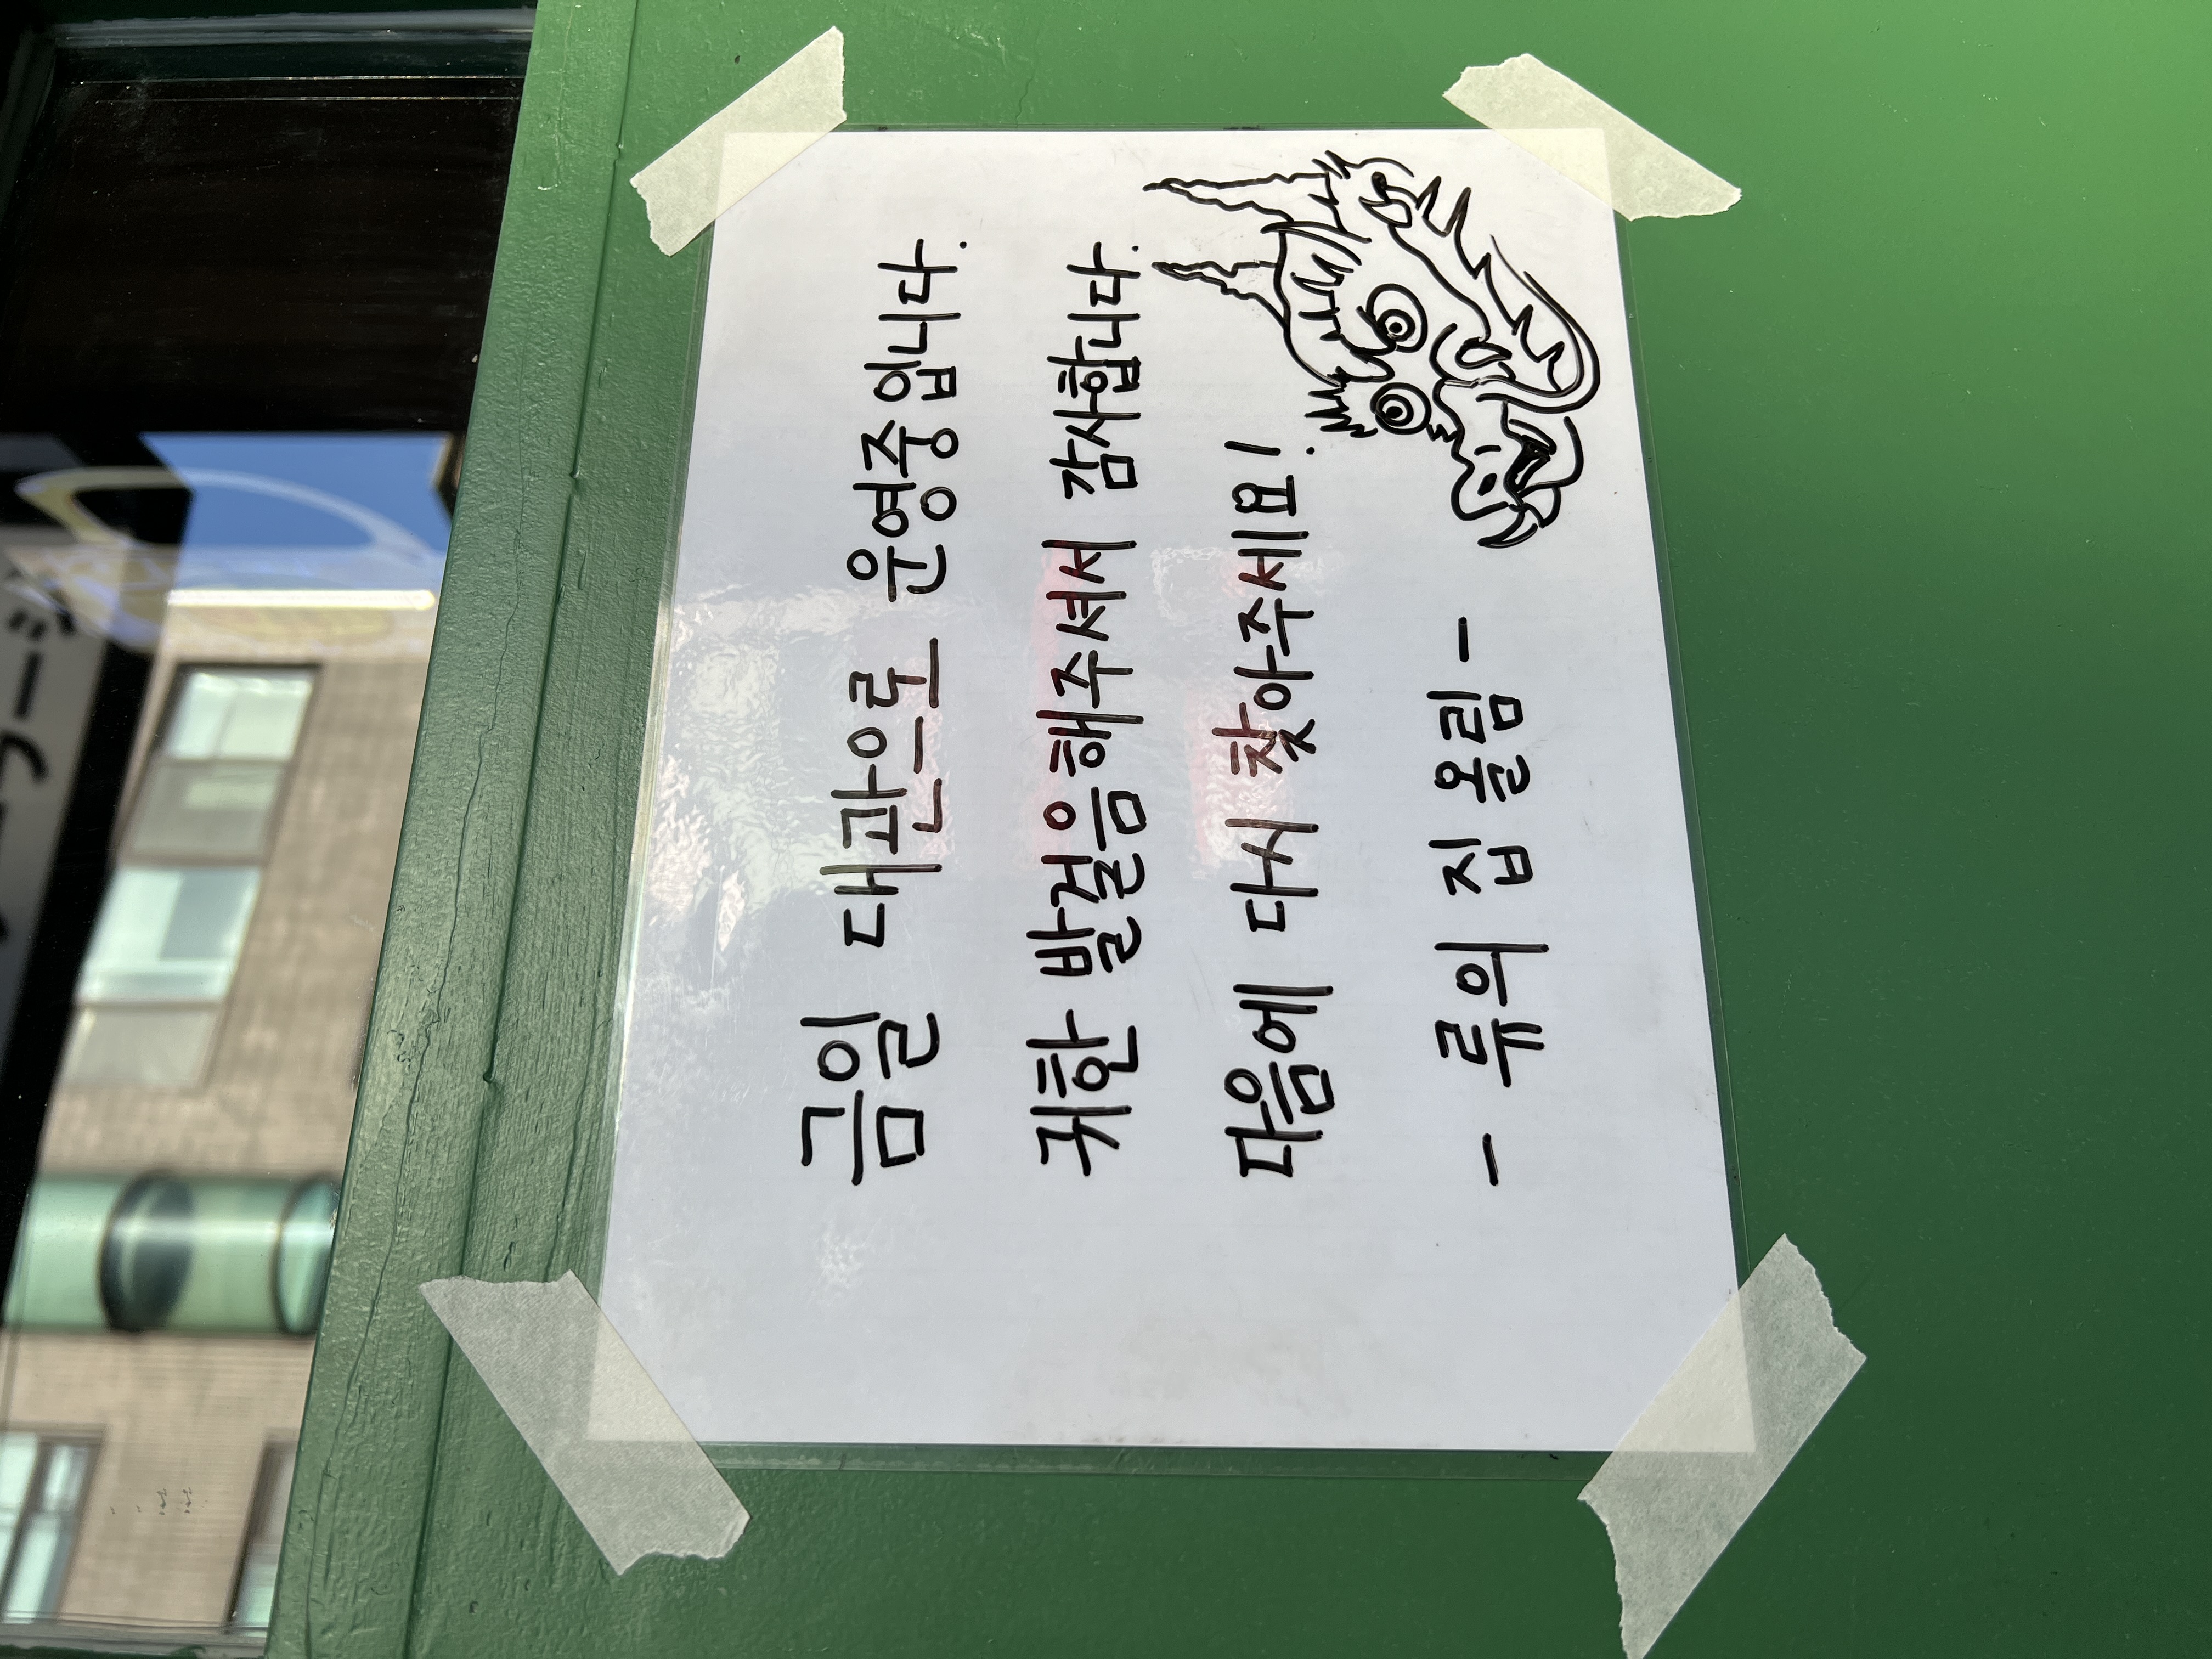 금일 대관으로 운영중입니다.
귀한 발걸음해주셔서 감사합니다.
다음에 다시 찾아주세요!
- 류의 집 올림 -